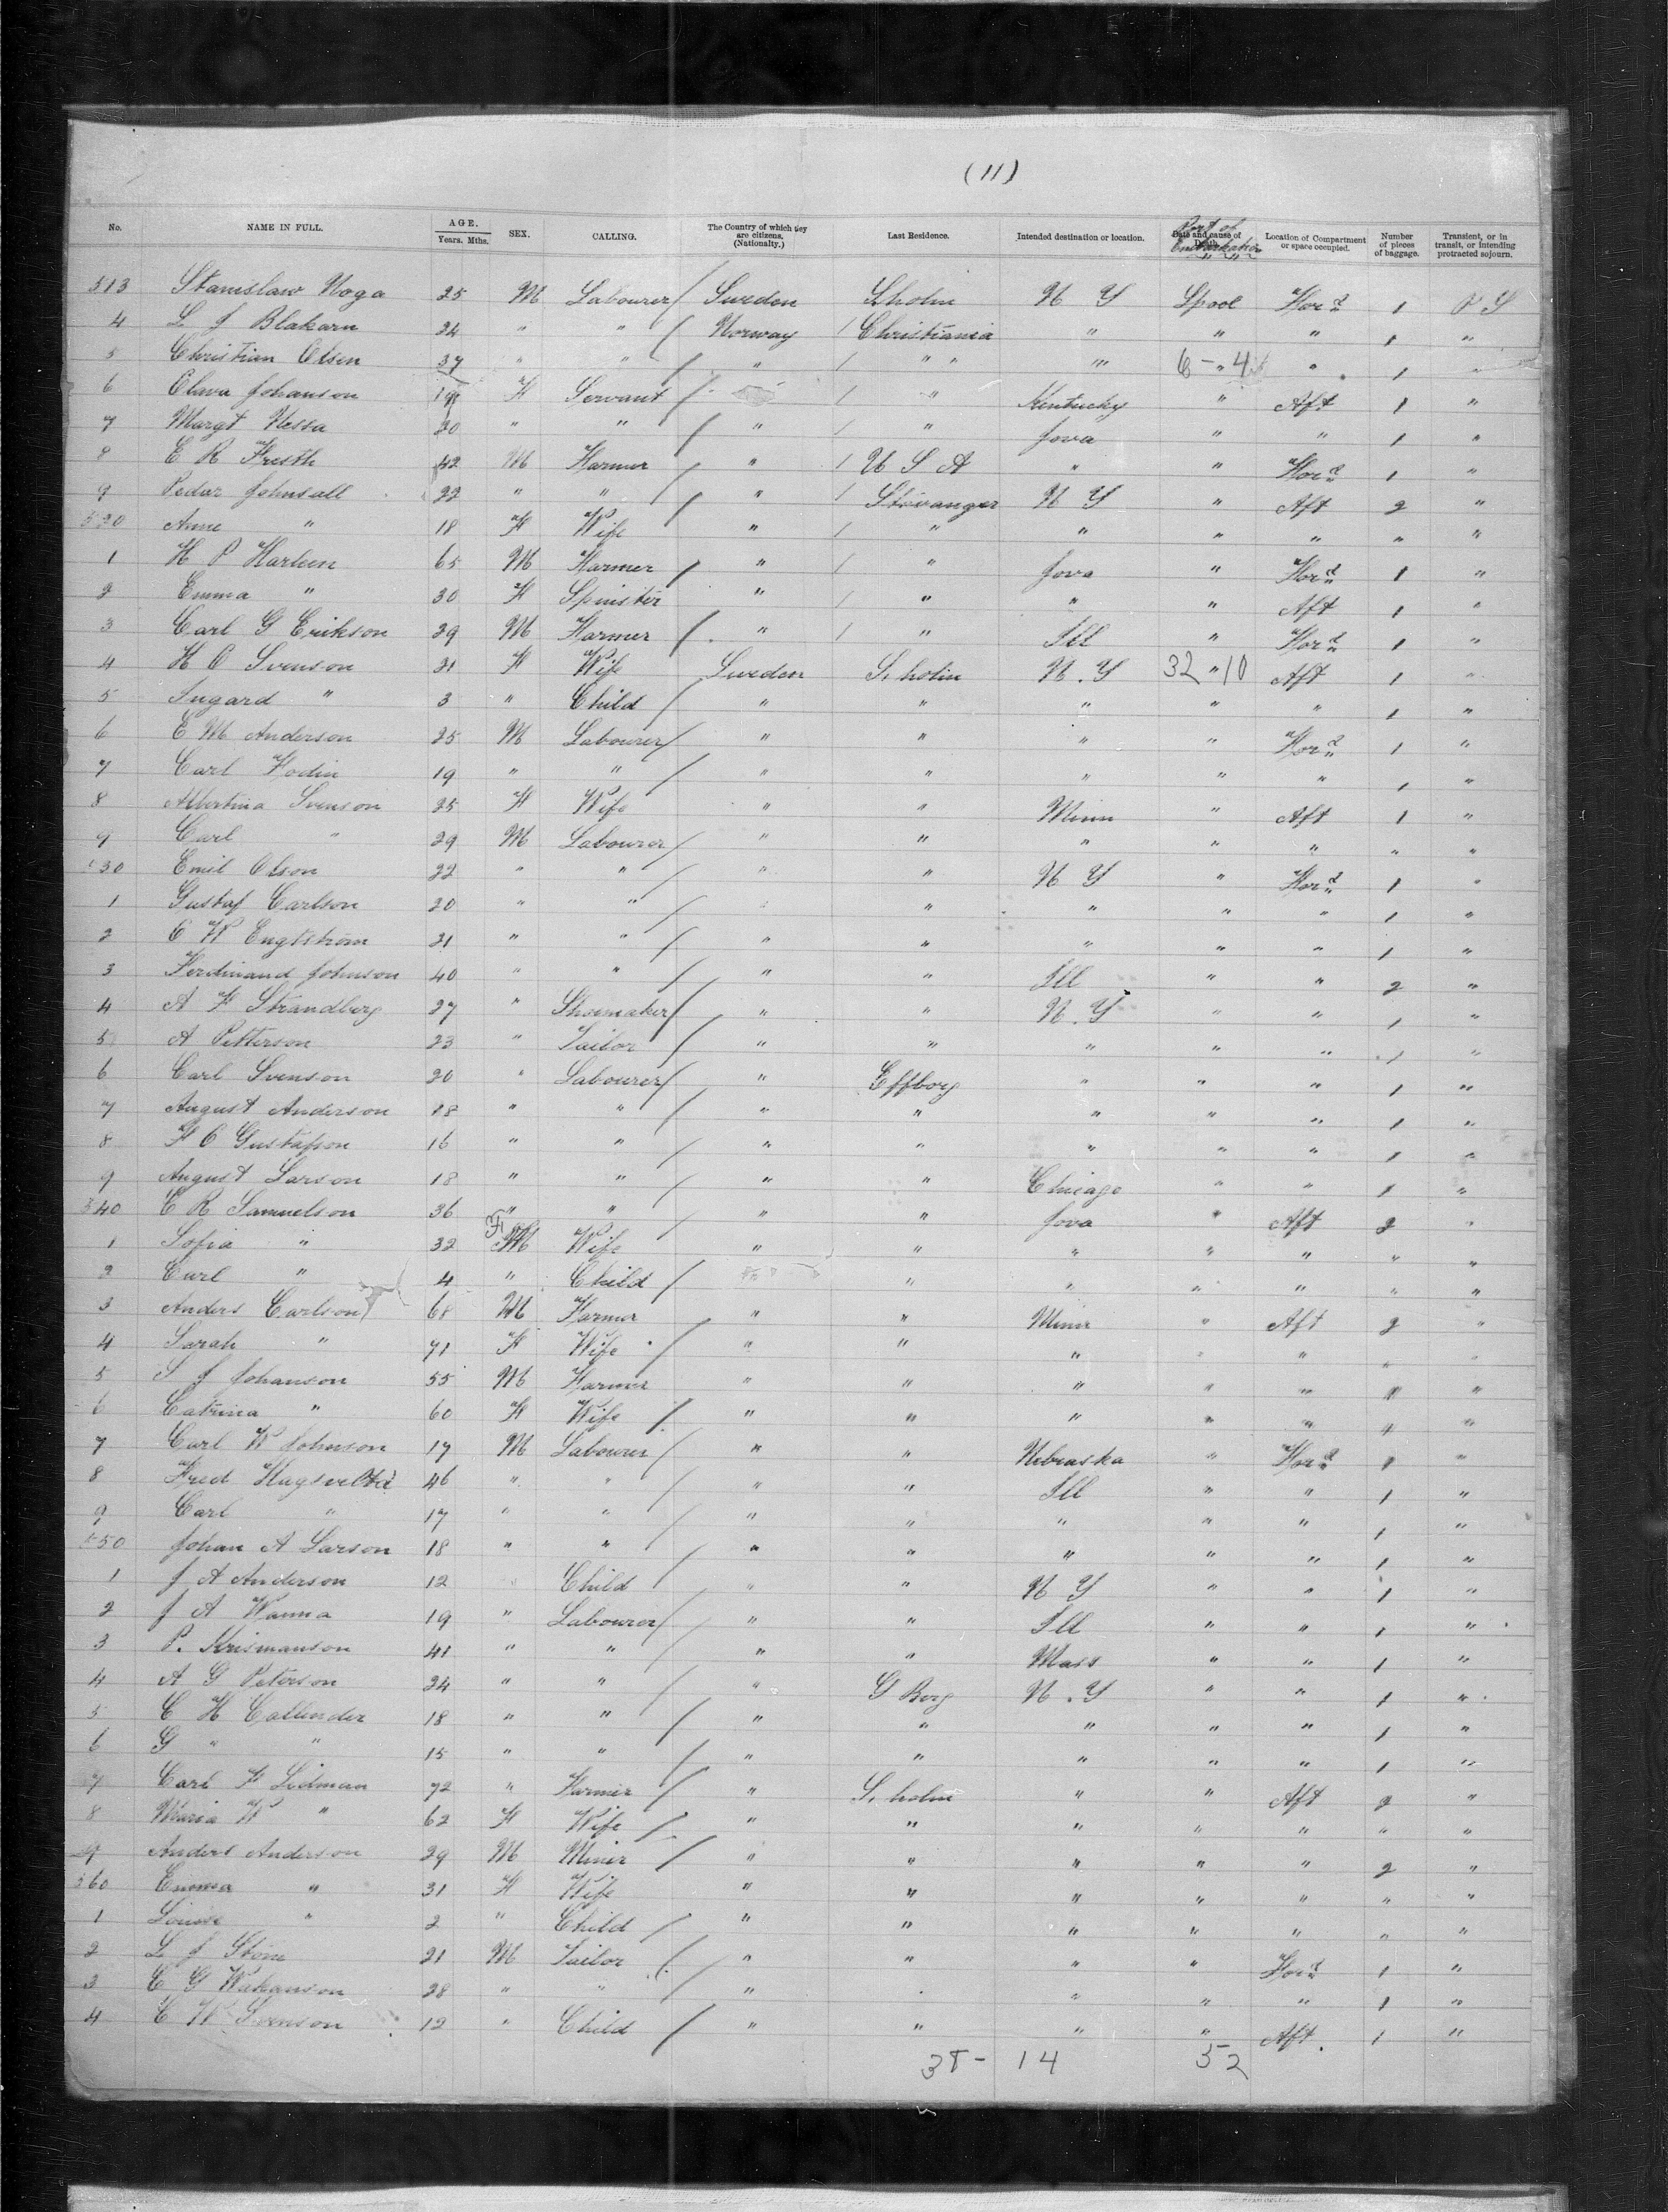 (11)
No. NAME IN FULL. AGE. Years. Mths. SEX. CALLING. The Country of which they are citizens. (Nationalty.) Last Residence. Intended destination or location. Date and cause of Death. Port of Embarkation Location of Compartment or space occupied. Number of pieces of baggage. Transient, or in transit, or intending protracted sojourn.
513 Stanislaw Noga 25 M Labourer / Sweden S.holm N Y Lpool For.d 1 P S
4 L J Blakarn 24 " " / Norway / Christiania " " " 1 "
5 Christian Olsen 37 " " / " / " " " 6 - " 4 " 1 "
6 Olava Johanson 19 F Servant / / " Kentucky " Aft 1 "
7 Margt Nessa 20 " " / " / " Jova " " 1 "
8 E R Fresth 42 M Farmer " / U S A " " For.d 1 "
9 Pedar Johnsall 22 " " / " / Stavanger N Y " Aft 2 "
520 Anne " 18 F Wife " / " " " " " "
1 H P Harleen 65 M Farmer / " / " Jova " For.d 1 "
2 Emma " 30 F Spinster " / " " " Aft 1 "
3 Carl G Erikson 29 M Farmer / " / " Ill " For.d 1 "
4 H O Svenson 31 F Wife Sweden S.holm N.Y 32 " 10 Aft 1 "
5 Ingard " 3 " Child / " " " " " 1 "
6 E M Anderson 25 M Labourer / " " " " For.d 1 "
7 Carl Hodin 19 " " / " " " " " 1 "
8 Albertina Svenson 25 F Wife " " Minn " Aft 1 "
9 Carl " 29 M Labourer / " " " " " " "
530 Emil Olson 22 " " / " " N Y " For.d 1 "
1 Gustaf Carlson 20 " " / " " " " 1 "
2 C W Englstrom 21 " " / " " " " " 1 "
3 Ferdinand Johnson 40 " " / " " Ill " " 2 "
4 A F Strandberg 27 " Shoemaker / " " N.Y " " 1 "
5 A Petterson 23 " Tailor / " " " " " 1 "
6 Carl Svenson 20 " Labourer / " Effborg " " " 1 "
7 August Anderson 18 " " / " " " " " 1 "
8 F C Gustafson 16 " " / " " " " " 1 "
9 August Larson 18 " " / " " Chicago " " 1 "
540 C R Samuelson 36 " " / " " Jova " Aft 2 "
1 Sofia " 32 F M Wife " " " " " " "
2 Carl " 4 " Child / " " " " " "
3 Anders Carlson 68 M Farmer " " Minn " Aft 2 "
4 Sarah " 71 F Wife / " " " " " " "
5 S J Johanson 55 M Farmer " " " " " "
6 Catrina " 60 F Wife / " " " " " "
7 Carl W Johnson 17 M Labourer / " " Nebraska " For.d 1 "
8 Fred 46 " " / " " Ill " " 1 "
9 Carl " 17 " " / " " " " " 1 "
550 Johan A Larson 18 " " / " " " " " 1 "
1 J A Anderson 12 Child / " " N Y " " 1 "
2 J A Wanna 19 " Labourer / " " Ill " " 1 "
3 P. Krismanson 41 " " / " " Mass " " 1 "
4 A G Peterson 24 " " / " G Borg N.Y " " 1 "
5 C H Callender 18 " " / " " " " " 1 "
6 G " " 15 " " / " " " " " 1 "
7 Carl F Lidman 72 " Farmer / " S.holm " " Aft 2 "
8 Maria W " 62 F Wife / " " " " " " "
9 Anders Anderson 29 M Miner / " " " " " 2 "
560 Emma " 31 F Wife " " " " " " "
1 Louise " 2 " Child / " " " " " " "
2 L J Strom 21 M Tailor / " " " " For.d 1 "
3 C G Wakanson 28 " " / " " " " 1 "
4 C W Svenson 12 " Child / " " " " Aft. 1 "
38 - 14 52